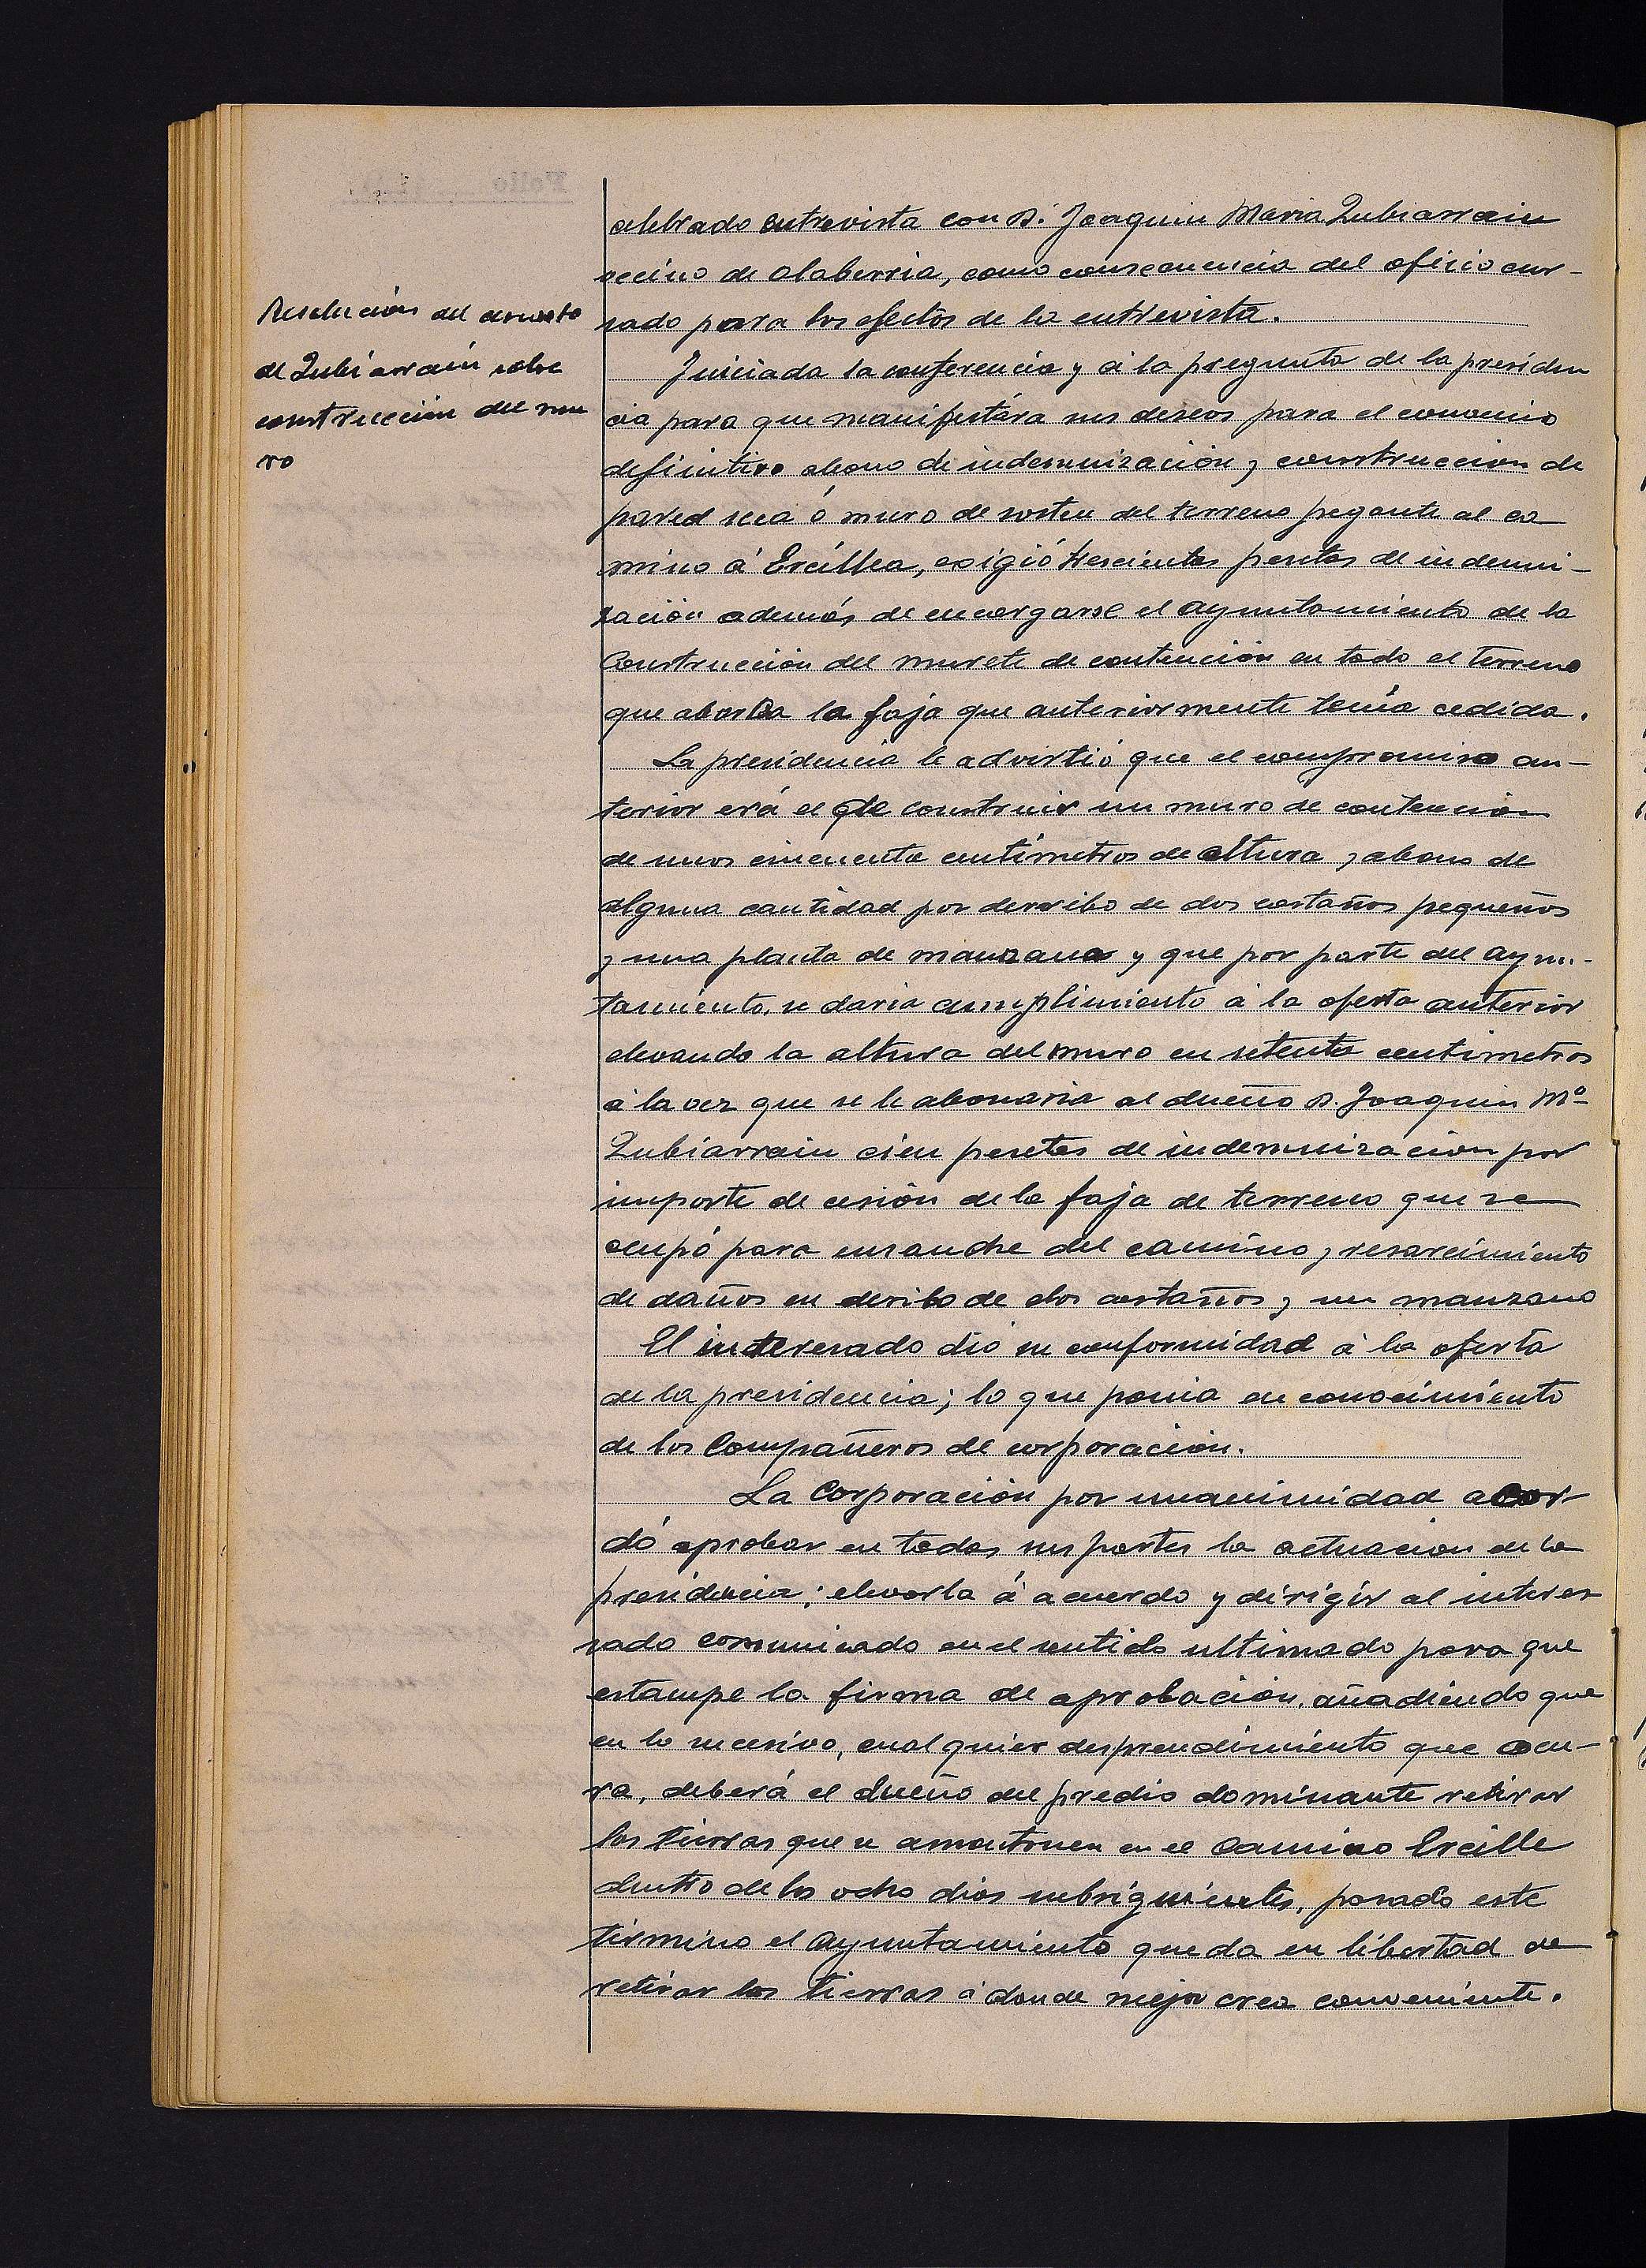 Resolución del asunto
de Zubiarrain sobre
construcción del mu
ro
celebrado entrevista con D. Joaquin Maria Zubiarrain
vecino de Olaberria, como consecuencia del oficio cur-
sado para los efectos de la entrevista.
Iniciada la conferencia y á la pregunta de la presiden
cia para que manifestára sus deseos para el convenio
definitivo abono de indemnización y construccion de
pared seca ó muro de sosten del terreno pegante al ca
mino á Ercilla, exigió trescientas pesetas de indemni-
zación además de encargarse el ayuntamiento de la
Construcción del murete de contención en todo el terreno
que abarca la faja que anteriormente tenía cedida.
La presidencia le advirtió que el compromiso an-
terior erá el de construir un muro de contencion
de unos cincuenta centímetros de altura y abono de
alguna cantidad por derribo de dos castaños pequeños
y una planta de manzana y que por parte del ayun-
tamiento, se daria cumplimiento á la oferta anterior
elevando la altura del muro en setenta centimetros
á la vez que se le abonaria al dueño D. Joaquin Mª
Zubiarrain cien pesetas de indemnizacion por
importe de cesión de la faja de terreno que se
ocupó para ensanche del camino y resarcimiento
de daños en deribo de dos castaños y un manzano
El interesado dió su conformidad á la oferta
de la presidencia; lo que ponia en conocimiento
de los Compañeros de corporación.
La Corporación por unanimidad acor-
dó aprobar en todas sus partes la actuacion de la
presidencia; elevarla á acuerdo y dirigir al intere
sado comunicado en el sentido ultimado para que
estampe la firma de aprobación, añadiendo que
en lo sucesivo, cualquier desprendimiento que ocu-
ra, deberá el dueño del predio dominante retirar
las tierras que se amontonen en el Camino Ercille
dentro de los ocho dias subsiguientes, pasado este
término el Ayuntamiento queda en libertad de
retirar las tierras á donde mejor crea conveniente.